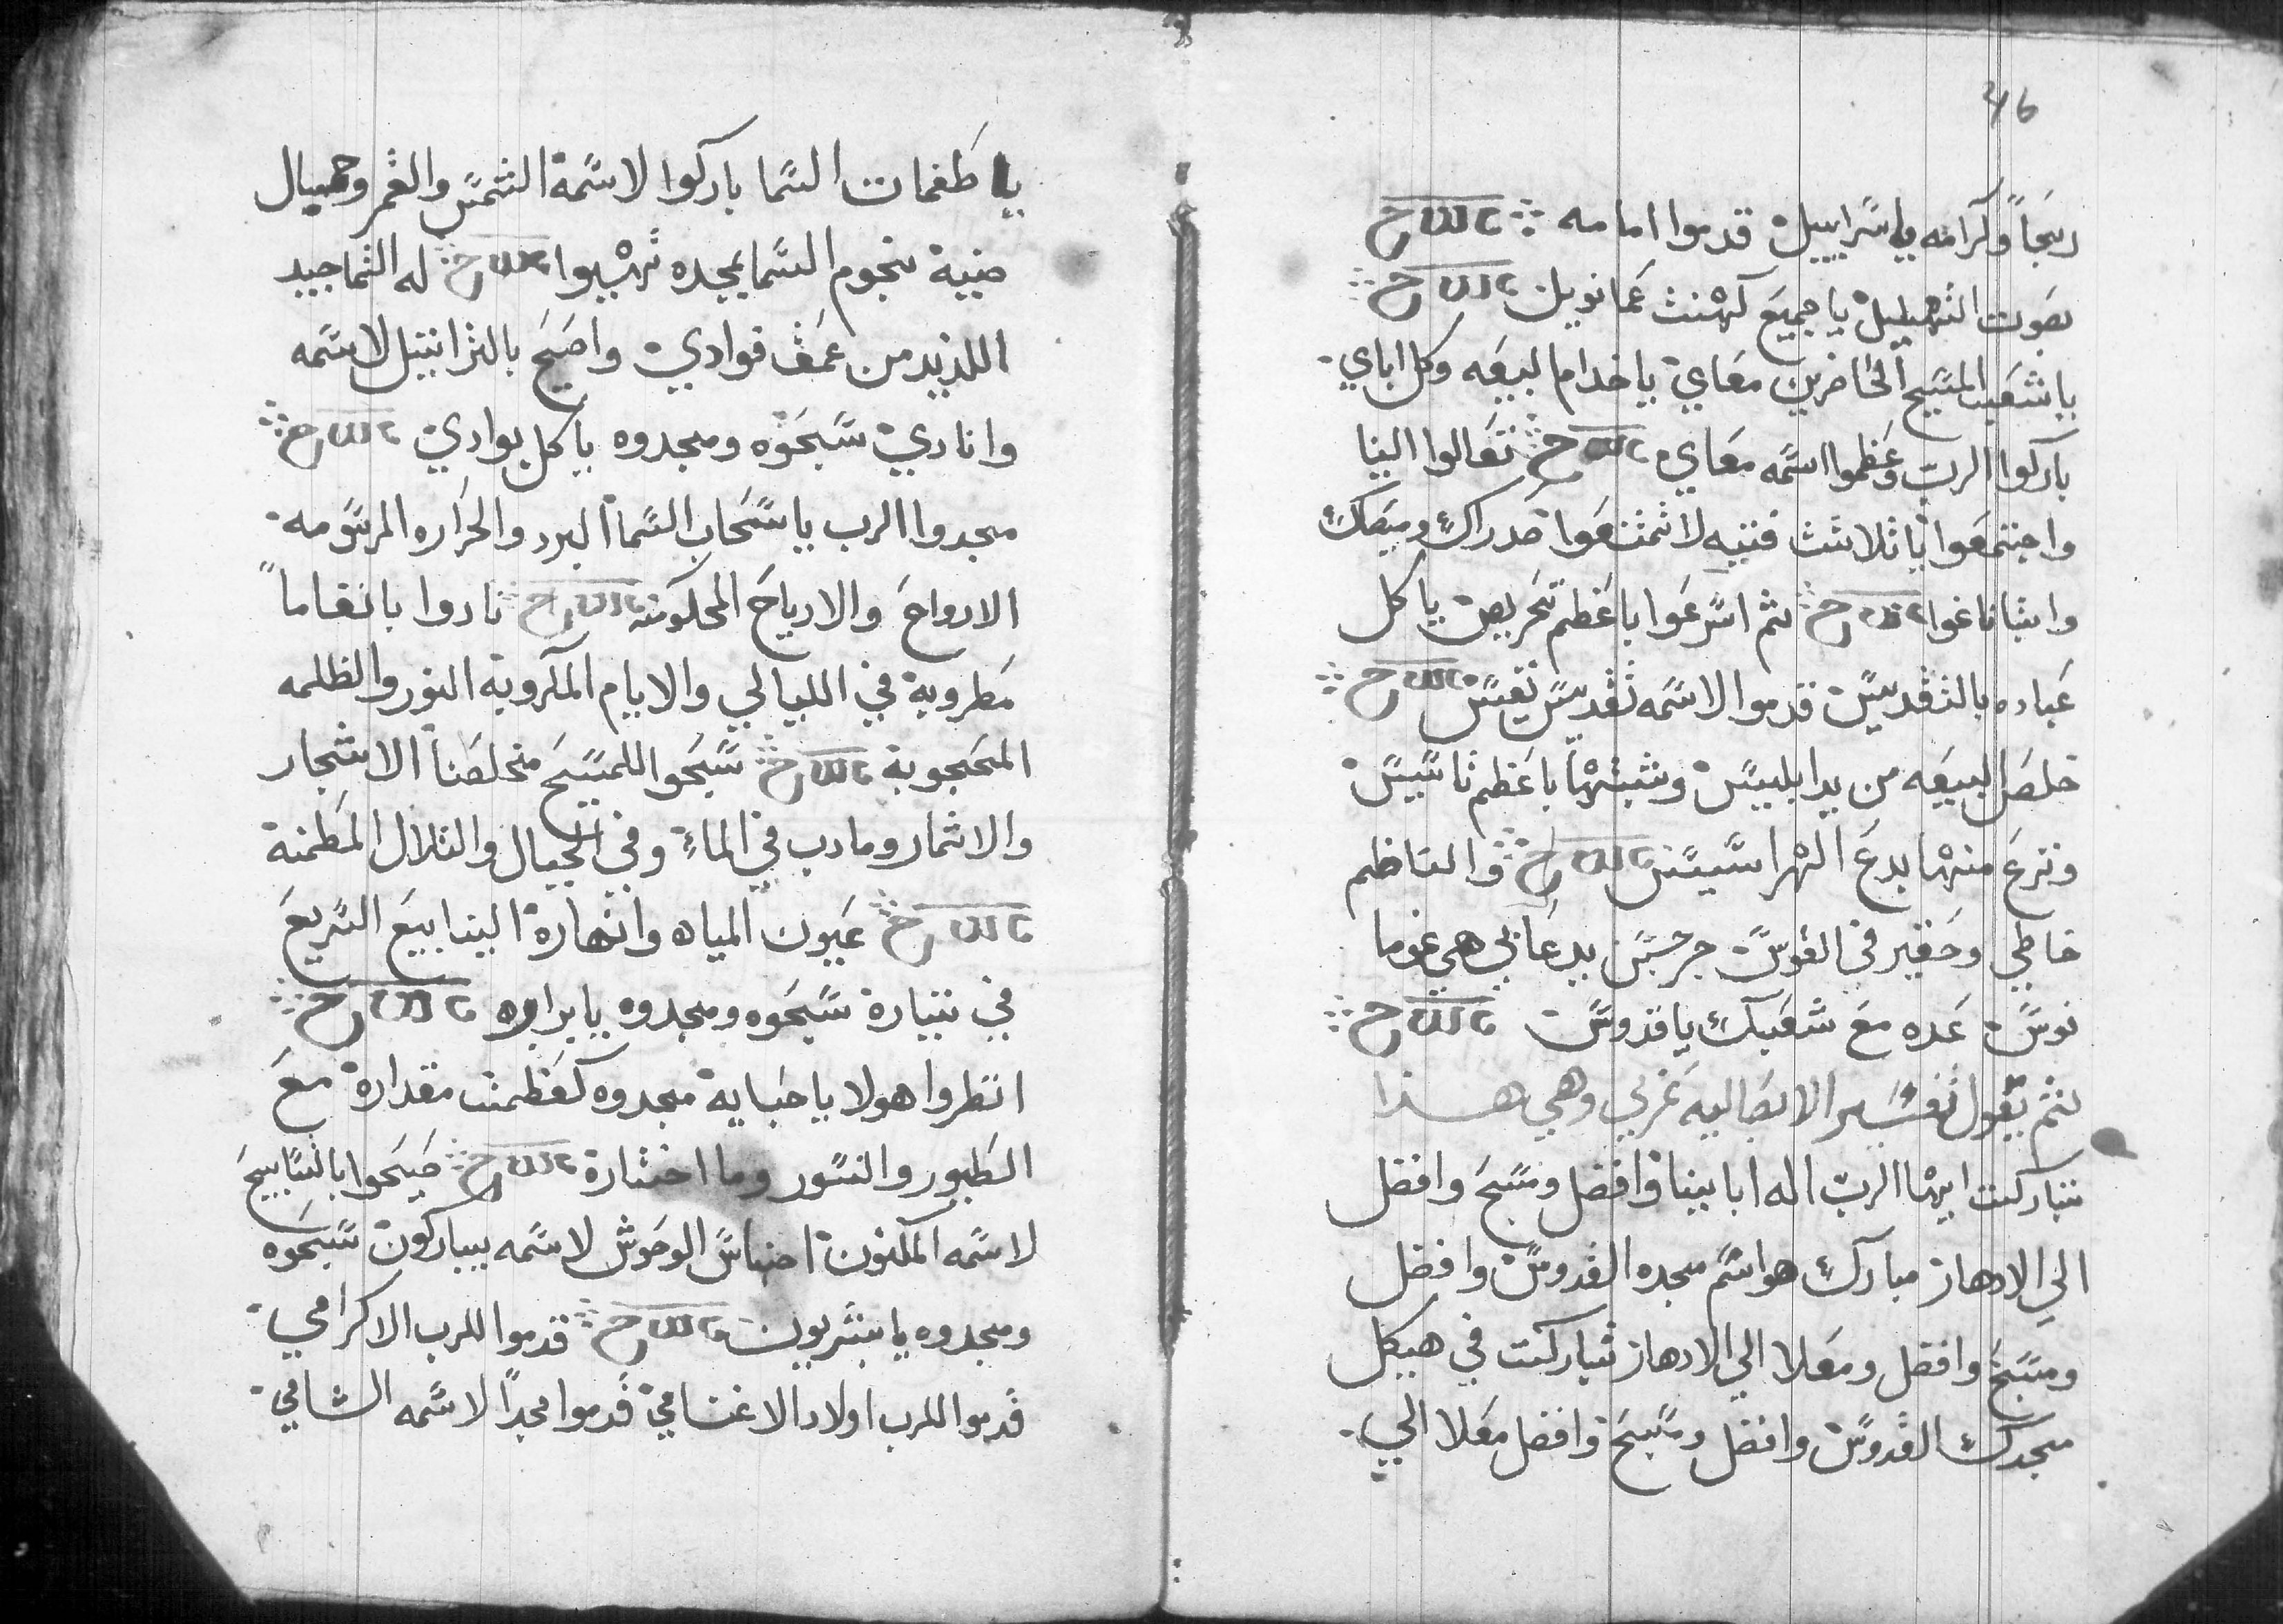 46
ربحاً وكرامه ياسراييل قدموا امامه
بصوت التهليل يا جميع كهنت عمانويل
ياشعب المسيح الحاضرين معاي ياخدام البيعه وكل اباي
باركوا الرب وعظموا اسمه معاي تعالوا الينا
واجتمعوا ياثلاثت فتيه لاتمتنعوا صدراك وميصاك
وابناناغوا ثم اسرعوا باعظم تحريص ياكل
عباده بالتقديس قدموا لاسمه تقديس نفيس
خلص البيعه من يد ابليس وثبتها باعظم تاسيس
ونزع منها بدع الهراسيس والناظم
خاطي وحقير في القوس جرجس يدعا بي هي غوما
نوس عده مع شعبك ياقدوس
ثم يقول تفسير الابصاليه عربي وهي هذا
تباركت ايها الرب اله اباينا وافضل ومسبح وافضل
الي الادهار مبارك هو اسم مجده القدوس وافضل
ومسبح وافضل ومعلا الي الادهار تباركت في هيكل
مجدك القدوس وافضل ومسبح وافضل معلا الي
يا طغمات السما باركوا لاسمة الشمس والقمر وحميال
ضيية نجوم السما بمجده تهبوا له التماجيد
اللذيد من عمق فوادي واصيح بالتراتيل لاسمه
وانادي سبحوه ومجدوه ياكل بوادي
مجدوا الرب ياسحاب السما البرد والحراره المرسومه
الارواح والارياح المحكومه نادوا بانغاماً
مطروبة في الليالي والايام المكروبة النور والظلمه
المحجوبة سبحوا للمسيح مخلصنا الاشجار
والاثمار ومادب في الماء وفي الجبال والتلال المطمنة
عيون المياه وانهارة الينابيع السريع
في تيارة سبحوه ومجدوه يابراره
انظروا هولا ياحبايه مجدوه كعظمت مقدارة مع
الطيور والنسور وما اختارة صيحوا بالتسابيح
لاسمه المكنون اجناس الوحوش لاسمه يباركون سبحوه
ومجدوه يابشريون قدموا للرب الاكرامي
قدموا للرب اولاد الاغنامي قدموا مجداً لاسمه السامي